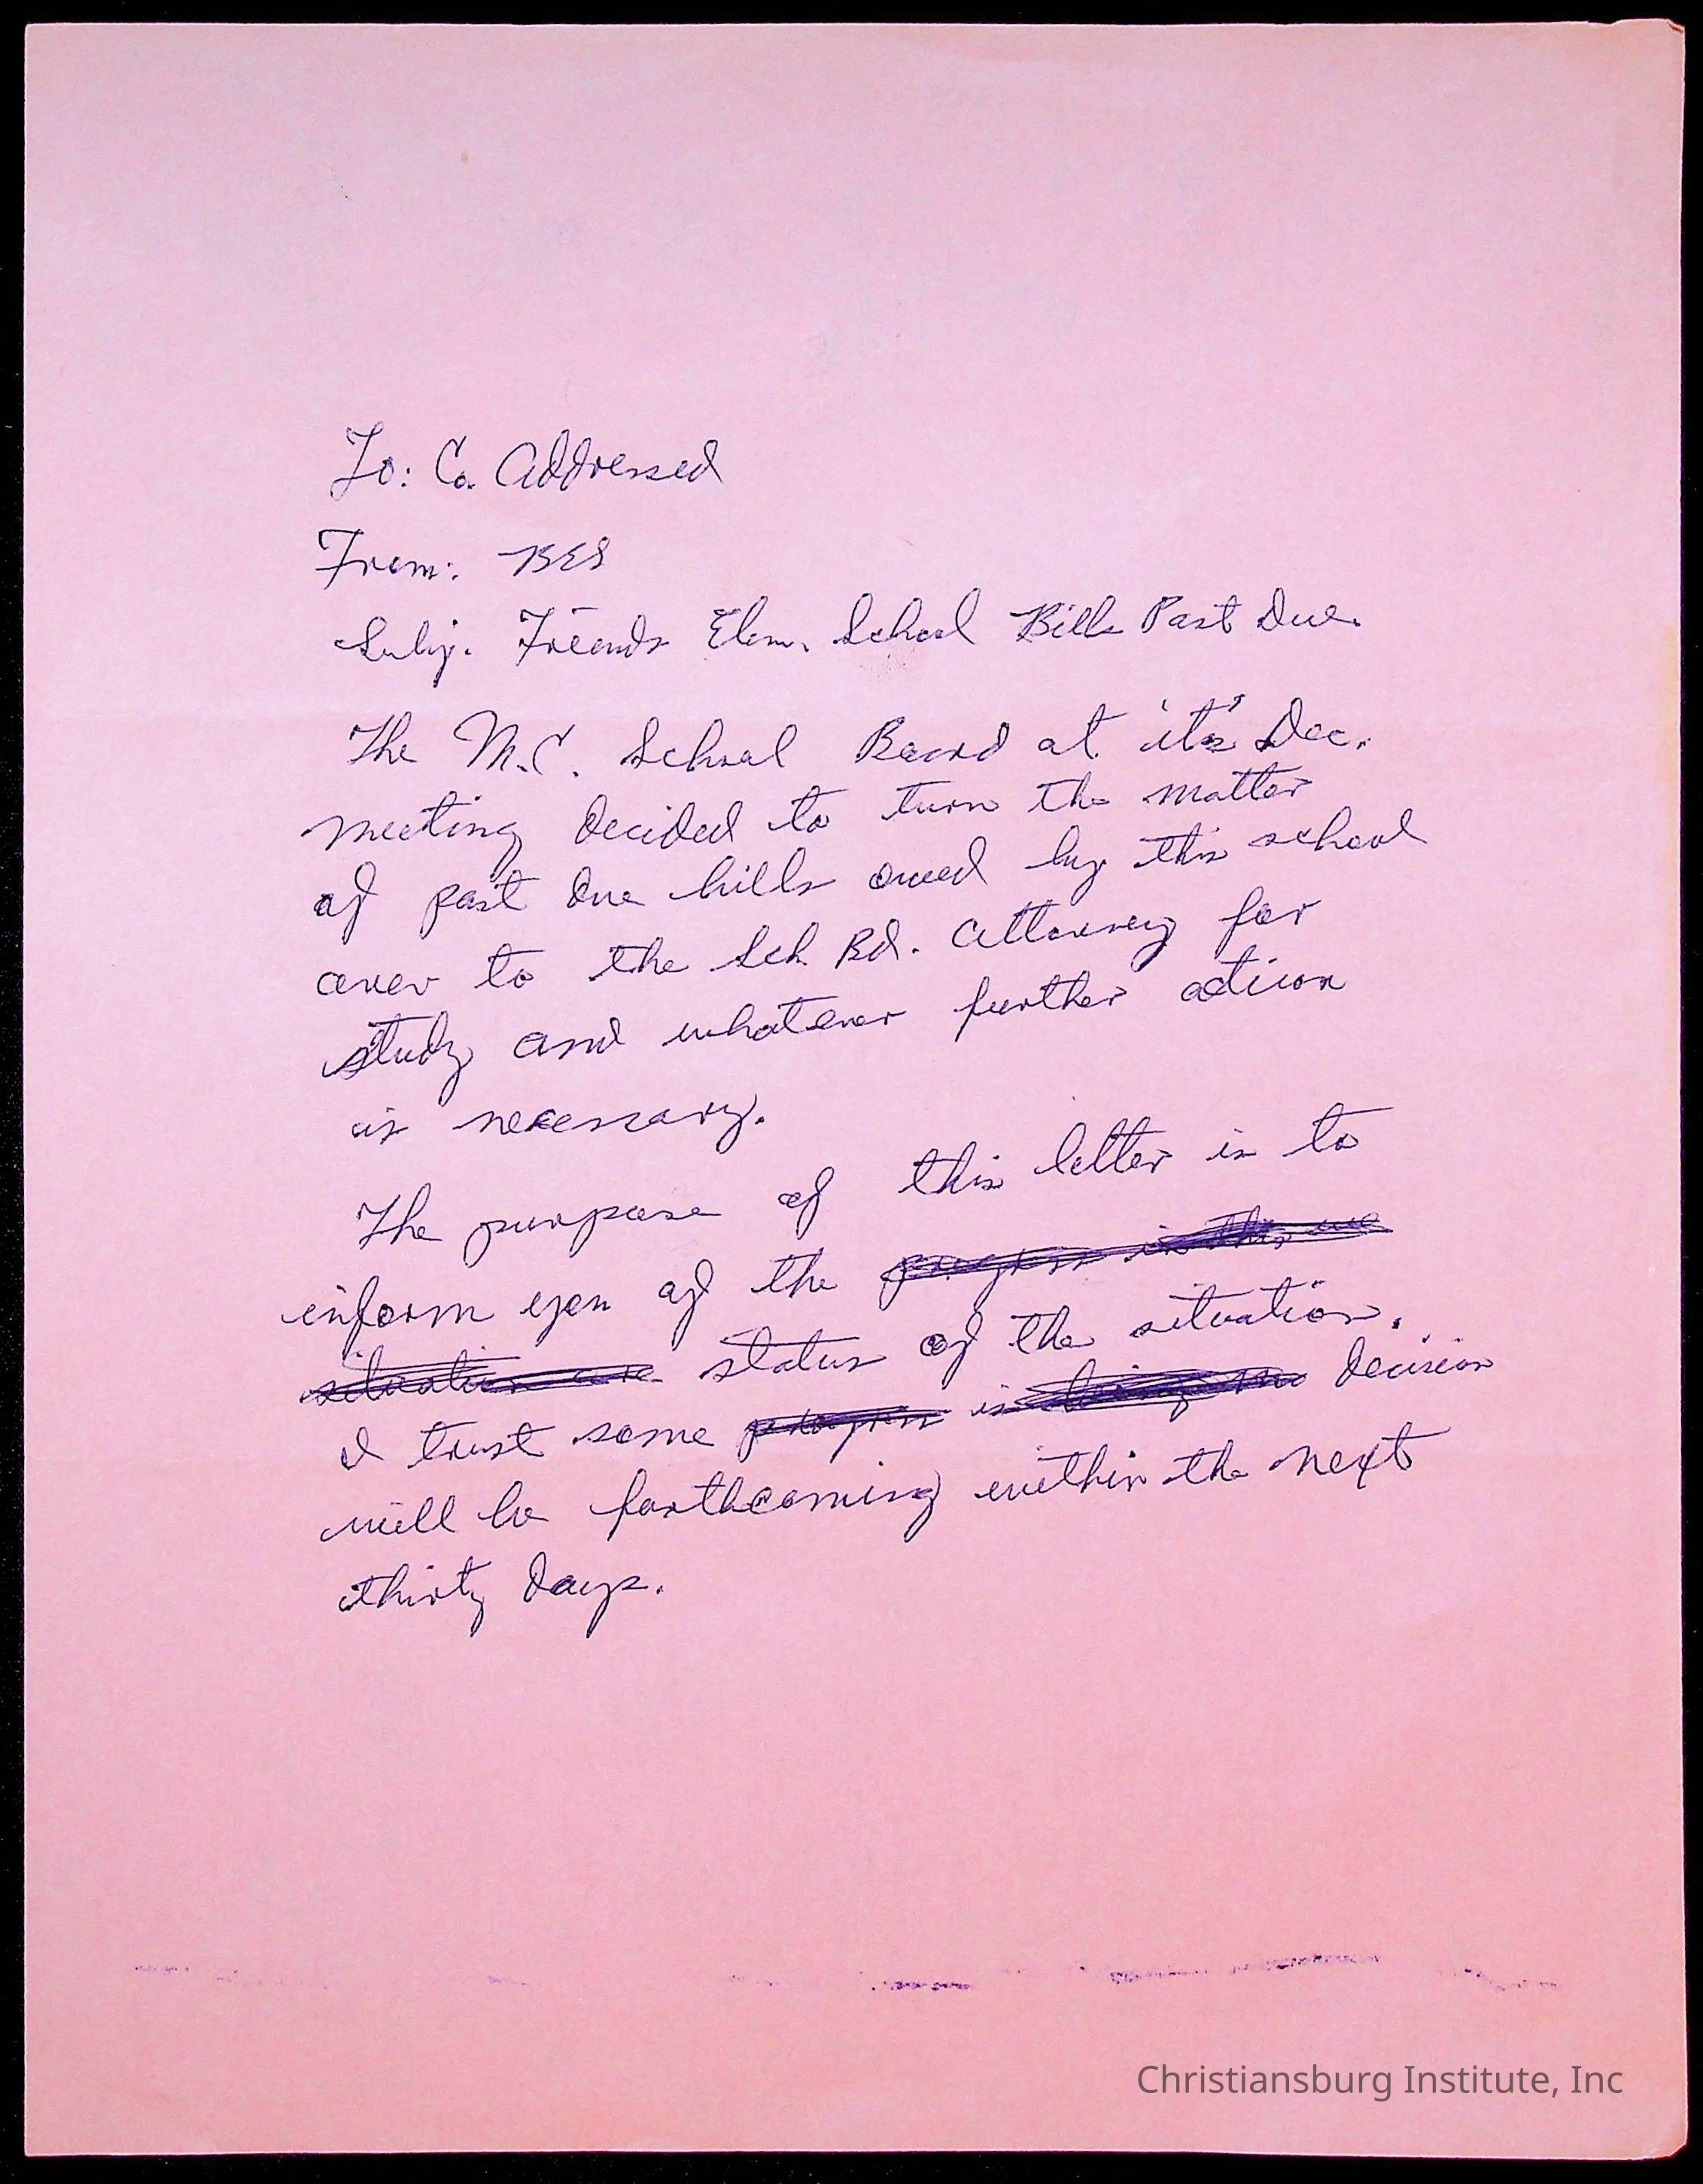 To: Co. Addressed
From: BES
Subj. Friends Elem. School Bills Past Due.
The M.C. School Board at it's Dec.
meeting decided to turn the matter
of past due bills owed by this school
over to the Sch Bd. Attorney for
study and whatever further action
is necessary.
The purpose of this letter is to
inform you of the progress in this we
situation are status of the situation.
I trust some progress is being made decision
will be forthcoming within the next
thirty days.
Christiansburg Institute, Inc